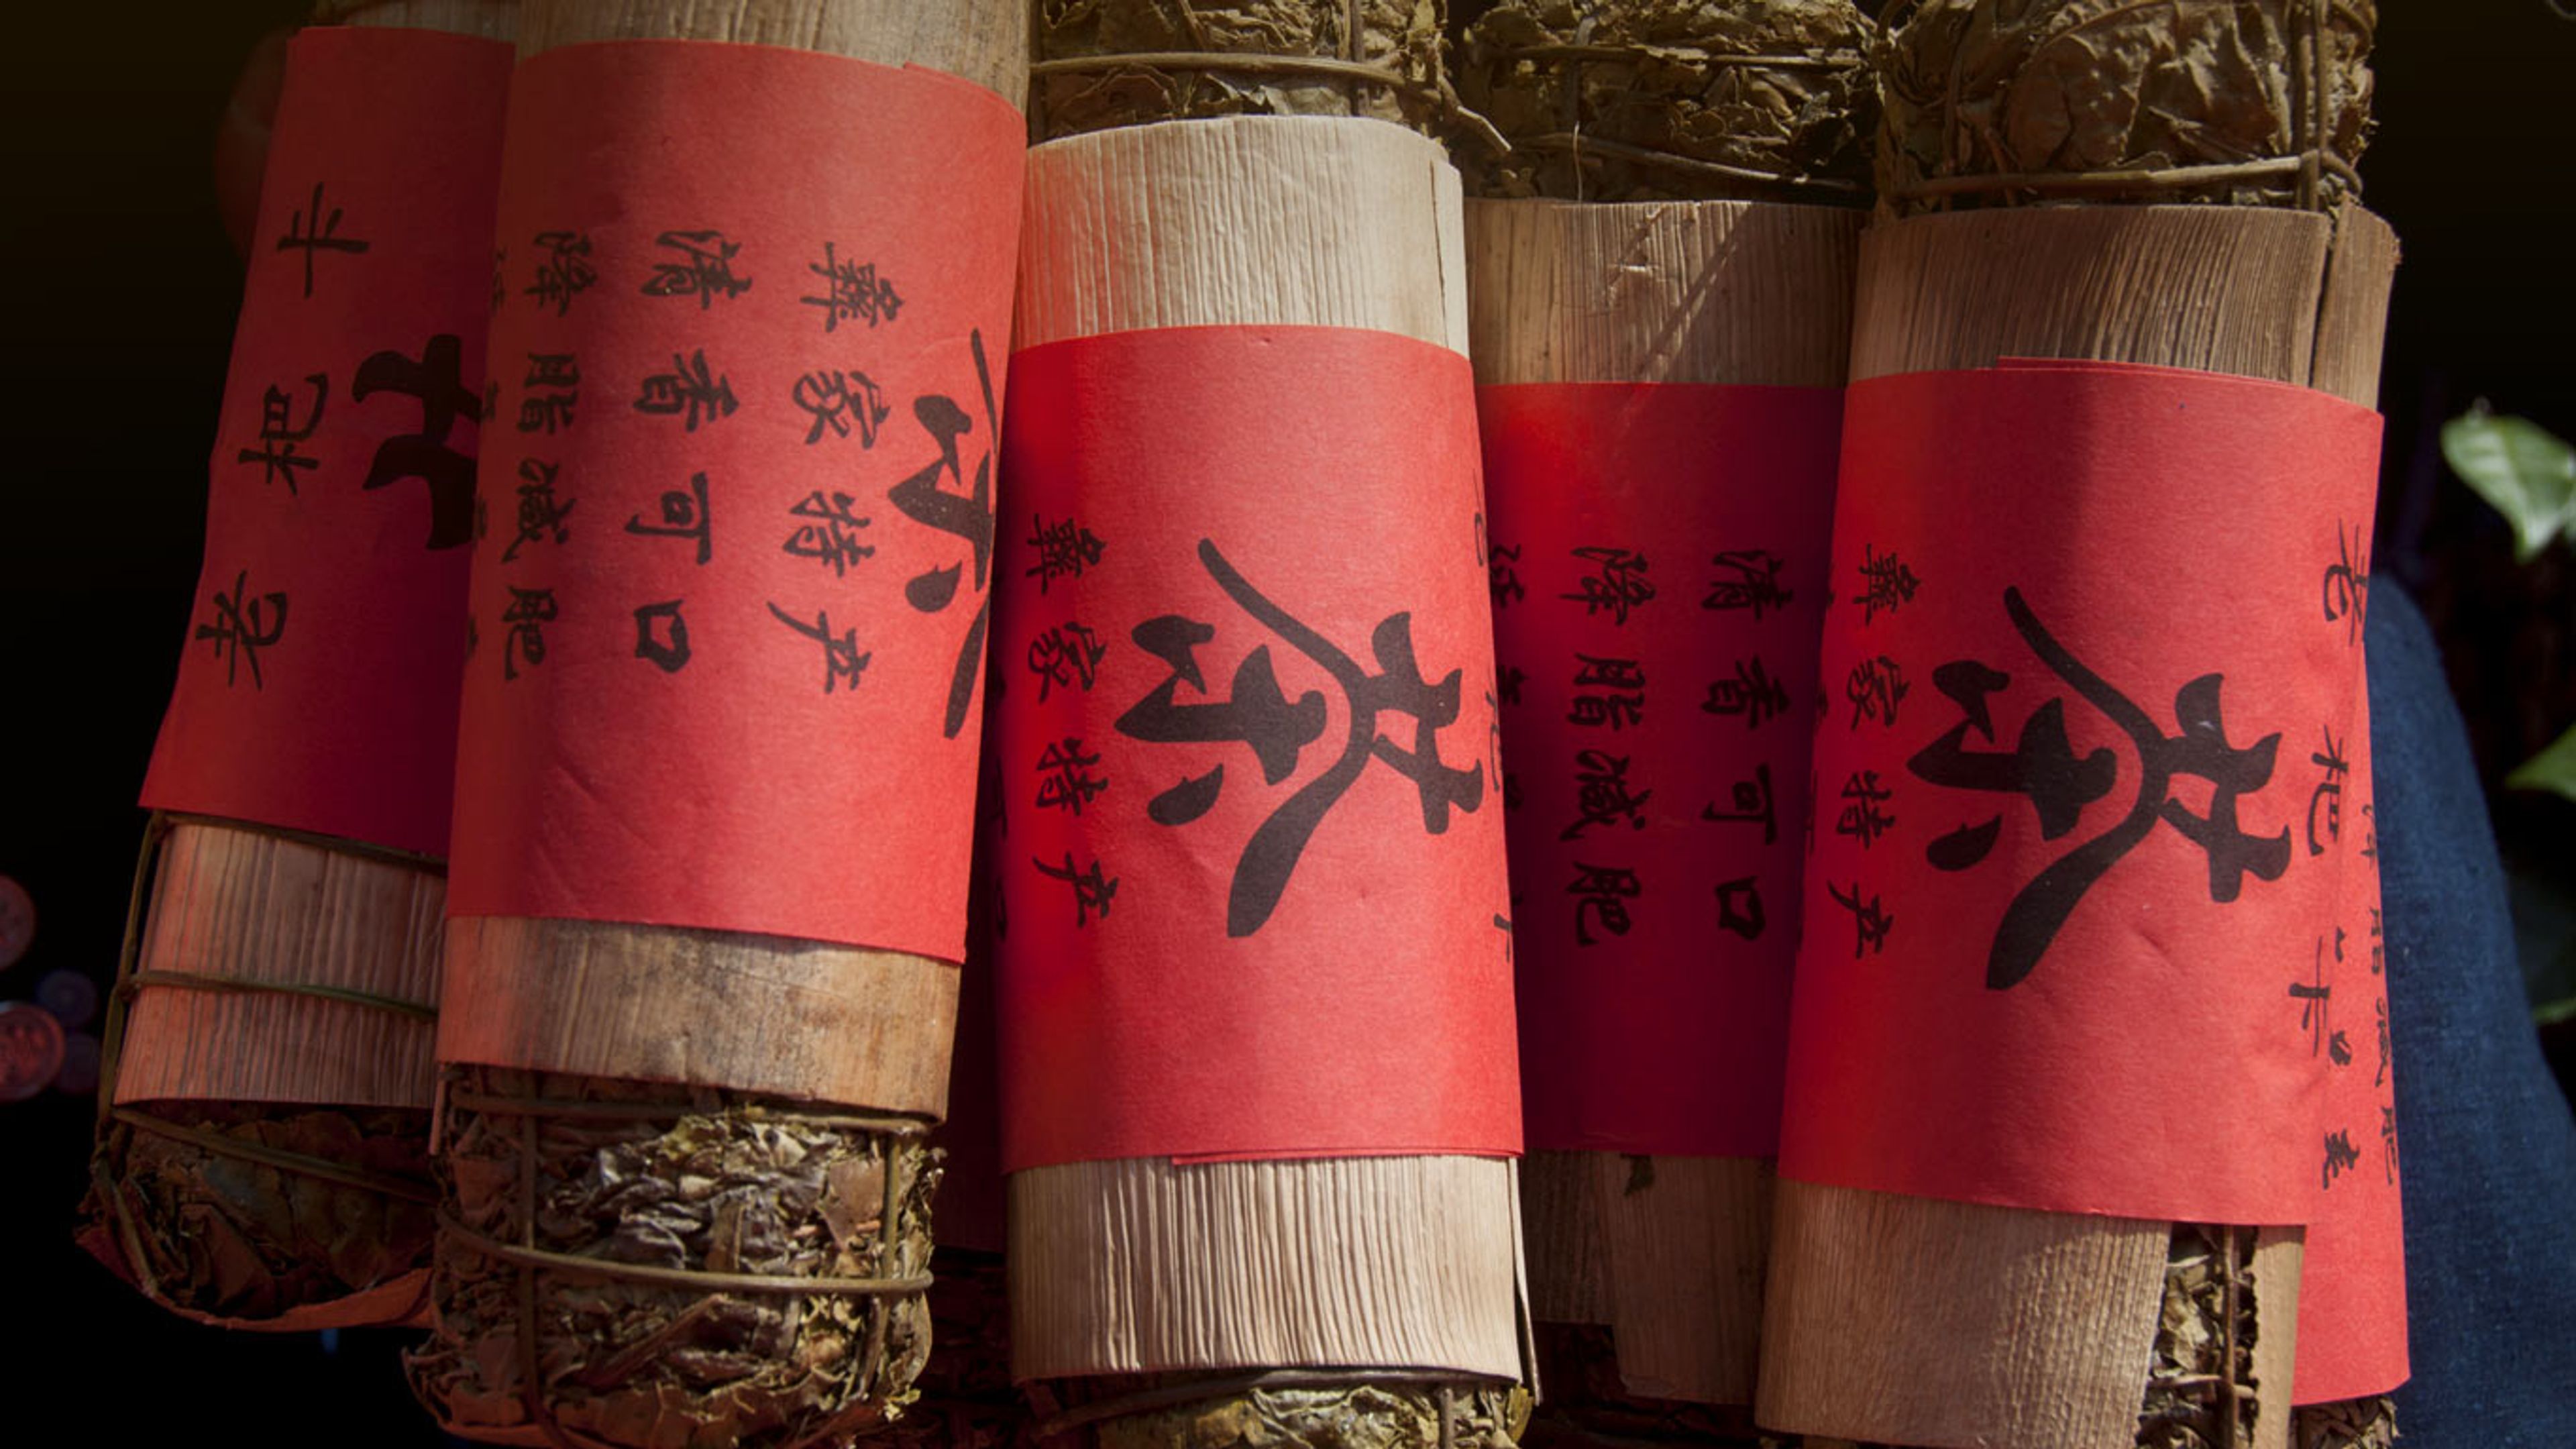 老
茶
彝家特产
清香可口
降脂减肥
茶
彝家特产
清香可口
降脂减肥
老
茶
彝家特产
脂减肥